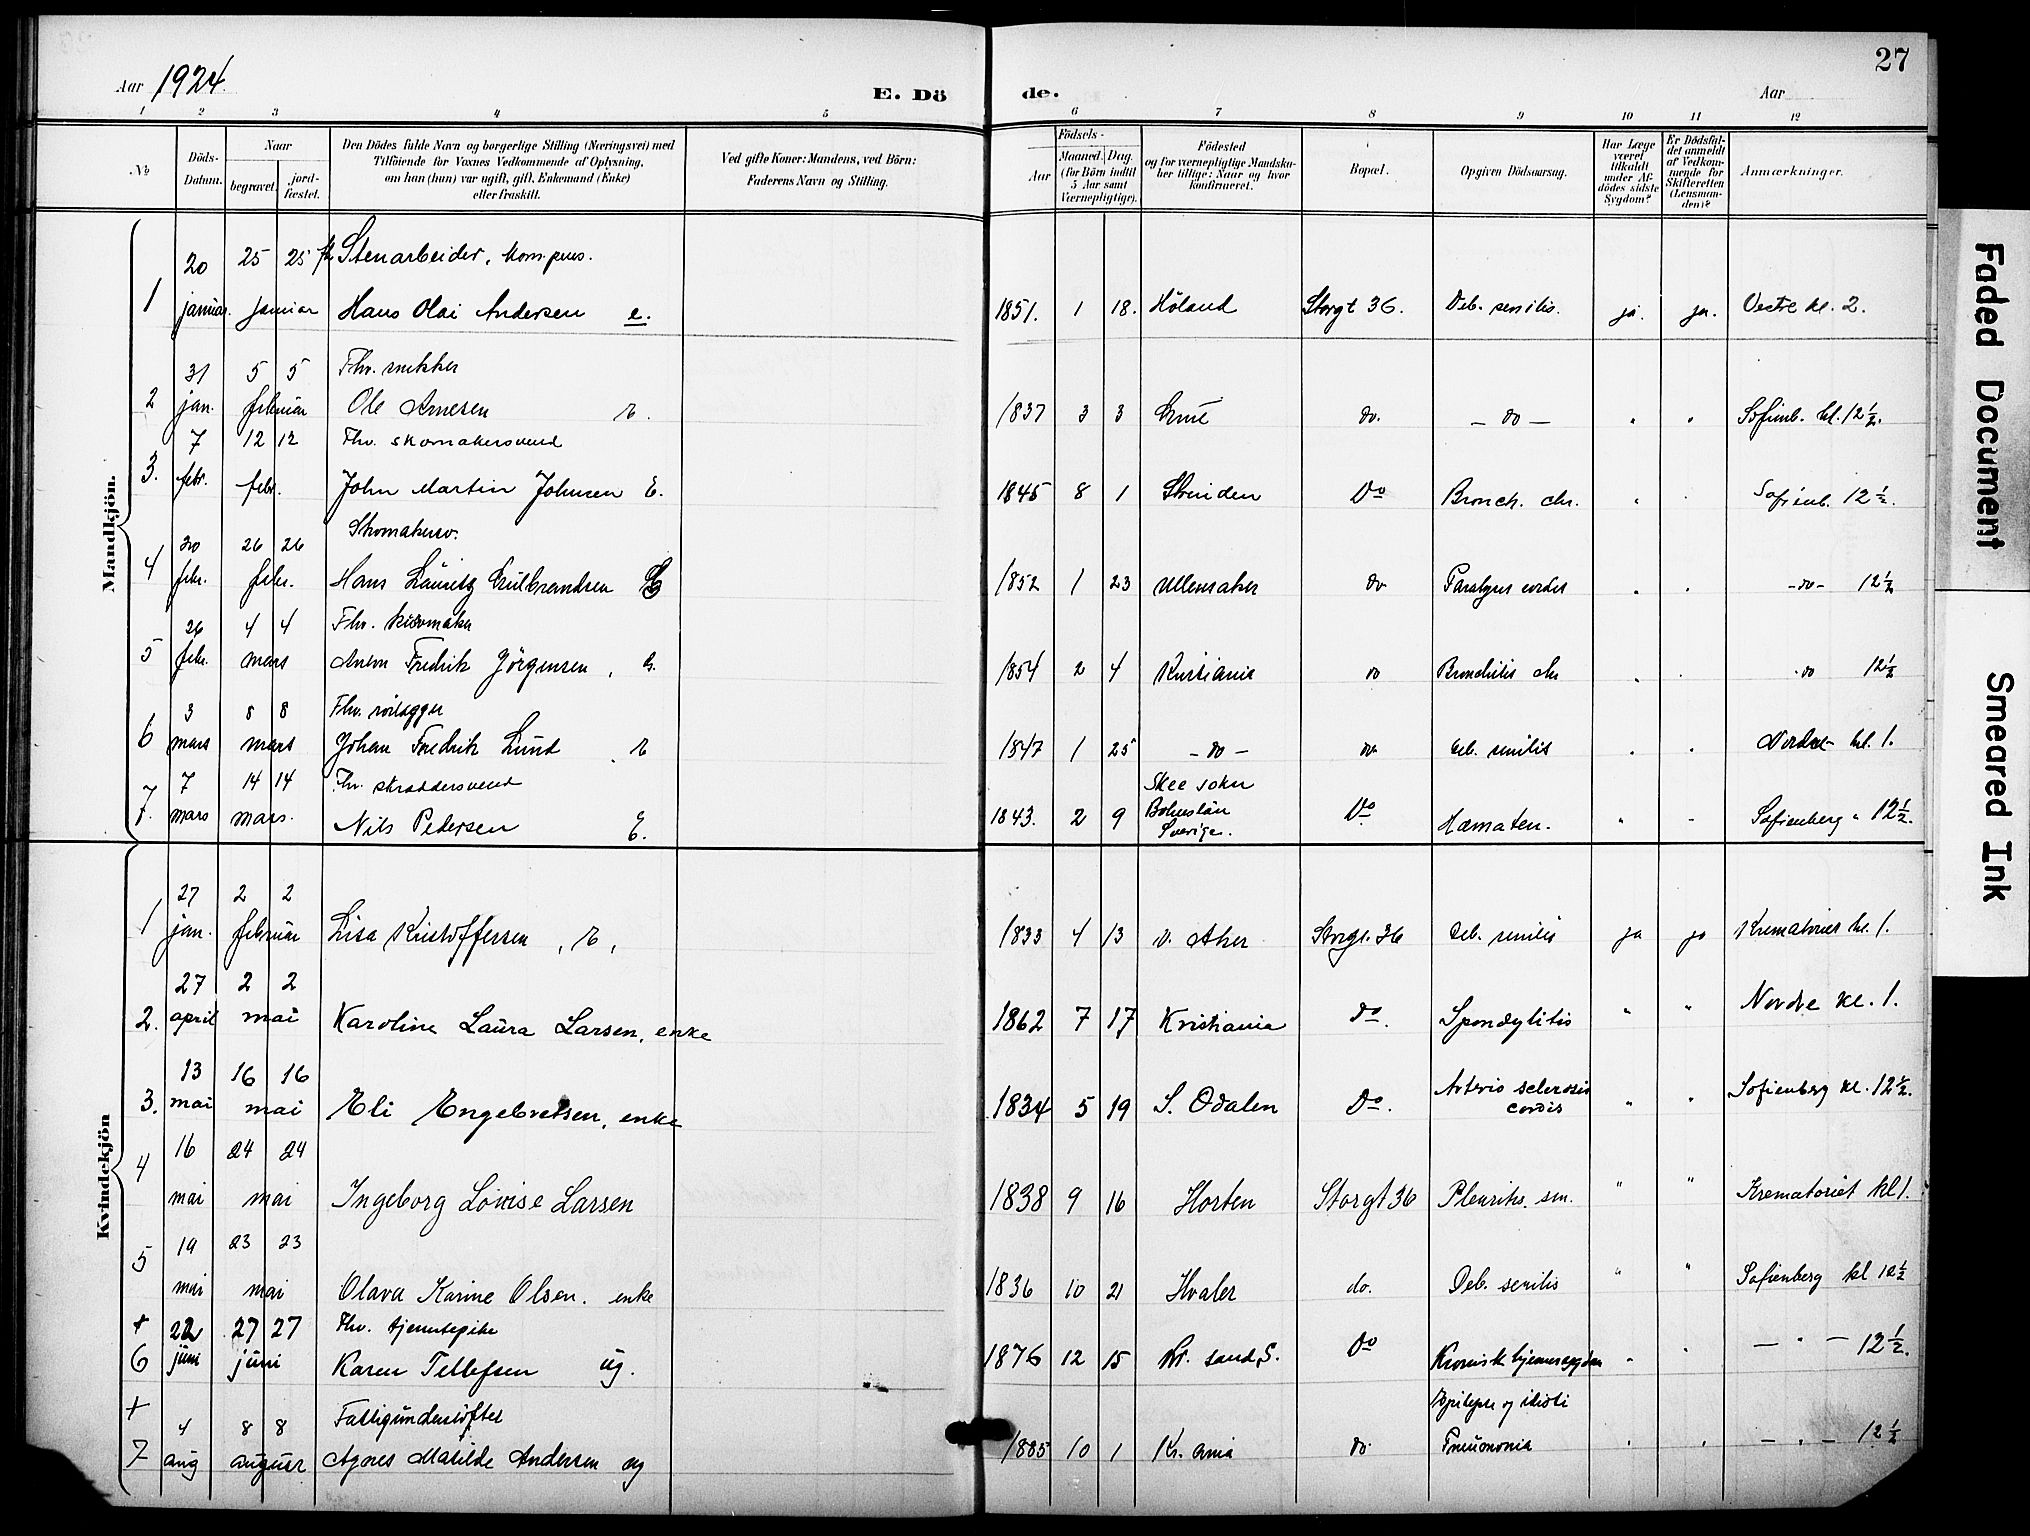 27
Aar 1924. E. Dö de. Aar
1 2 3 4 5 6 7 8 9 10 11 12
No
Döds-Datum.
Naar
begravet.
jord-fæstet.
Den Dödes fulde Navn og borgerlige Stilling (Næringsvei) med
Tilföiende for Voxnes Vedkommende af Oplysning,
om han (hun) var ugift, gift, Enkemand (Enke)
eller fraskilt.
Ved gifte Koner: Mandens, ved Börn:
Faderens Navn og Stilling.
Födsels-
Aar
Maaned. Dag.
(for Börn indtil
5 Aar samt
Værnepligtige).
Födested
og for værnepligtige Mandska-
ber tillige: Naar og hvor
konfirmeret.
Bopæl.
Opgiven Dödsaarsag.
Har Læge
været
tilkaldt
under Af-
dödes sidste
Sygdom?
Er Dödsfal-
det anmeldt
af Vedkom-
mende for
Skifteretten
(Lensman-
den)?
Anmærkninger.
Mandkjön.
20 25 25 Stenarbeider,
1 januar. januar Hans Olai Andersen e. 1851. 1 18. Höland Storgt 36. Deb. senilis. ja. ja. Vestre kl. 2.
31 5 5 Fhv. snekker
2 jan. februar Ole Arnesen E. 1837 3 3 Grue do. - do - " " Sofienb. kl. 12½.
7 12 12 Fhv. skomakersvend
3. febr. febr. John Martin Johnsen E. 1845 8 1 Strinden Do Bronch. chr. " " Sofienb. 12½.
20 26 26 Skomakersv.
4 febr. febr. Hans Lauritz Gulbrandsen E 1852 1 23 Ullensaker do Paralysis cordis " " -do- 12½
26 4 4 Fhv.
5 febr. mars Anton Fredrik Jörgensen, G. 1854 2 4 Kristiania do Bronchitis chr " " -do 12½
3 8 8 Fhv.
6 mars mars Johan Fredrik Lund E 1847 1 25 - do - do Deb. senilis " " Nordre kl. 1.
7 14 14 Fhv. skræddersvend Skee sokn
7. mars mars. Nils Pedersen E. 1843. 2 9 Bohuslän Sverige. Do Hæmaten. " " Sofienberg " 12½.
Kvindekjön
27 2 2
1 jan. februar Lisa Kristoffersen, E, 1833 4 13 v. Aker Storgt. 36 Deb. senilis ja ja Krematoriet kl. 1.
27 2 2
2. april mai Karoline Laura Larsen, enke 1862 7 17 Kristiania do. Spondylitis " " Nordre kl. 1.
13 16 16
3. mai mai Eli Engebretsen, enke 1834 5 19 S. Odalen Do. Arterio sclerosis cordis " " Sofienberg kl. 12½.
16 24 24
4 mai mai Ingeborg Lovise Larsen 1838 9 16 Horten Storgt 36 Pleurits. sen. " " Krematoriet kl 1.
19 23 23
5 mai mai Olava Karine Olsen. enke 1836 10 21 Hvaler do. Deb. senilis " " Sofienberg kl 12½
+ 22 27 27 Fhv. tjenestepike
6 juni juni Karen Tellefsen ug. 1876 12 15 Kr. sand, S. Do Kronisk hjernesygdom " " - " - 12½.
+ 4 8 8 Fattigunderstöttet Epilepsi og idioti
7 aug august Agnes Matilde Andersen ug 1885 10 1 Kr. ania do. Pneumonia " " - " - 12½
Faded Document
Smeared Ink